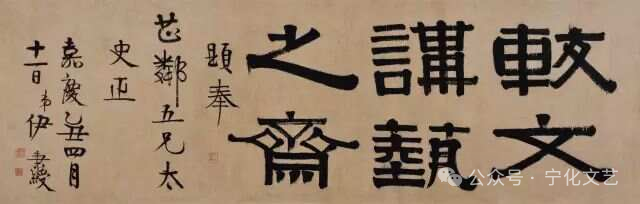 較文
講藝
之齋
題奉
芷鄰五兄太
史正
嘉慶乙丑四月
十一日弟伊秉綬
公众号·宁化文艺